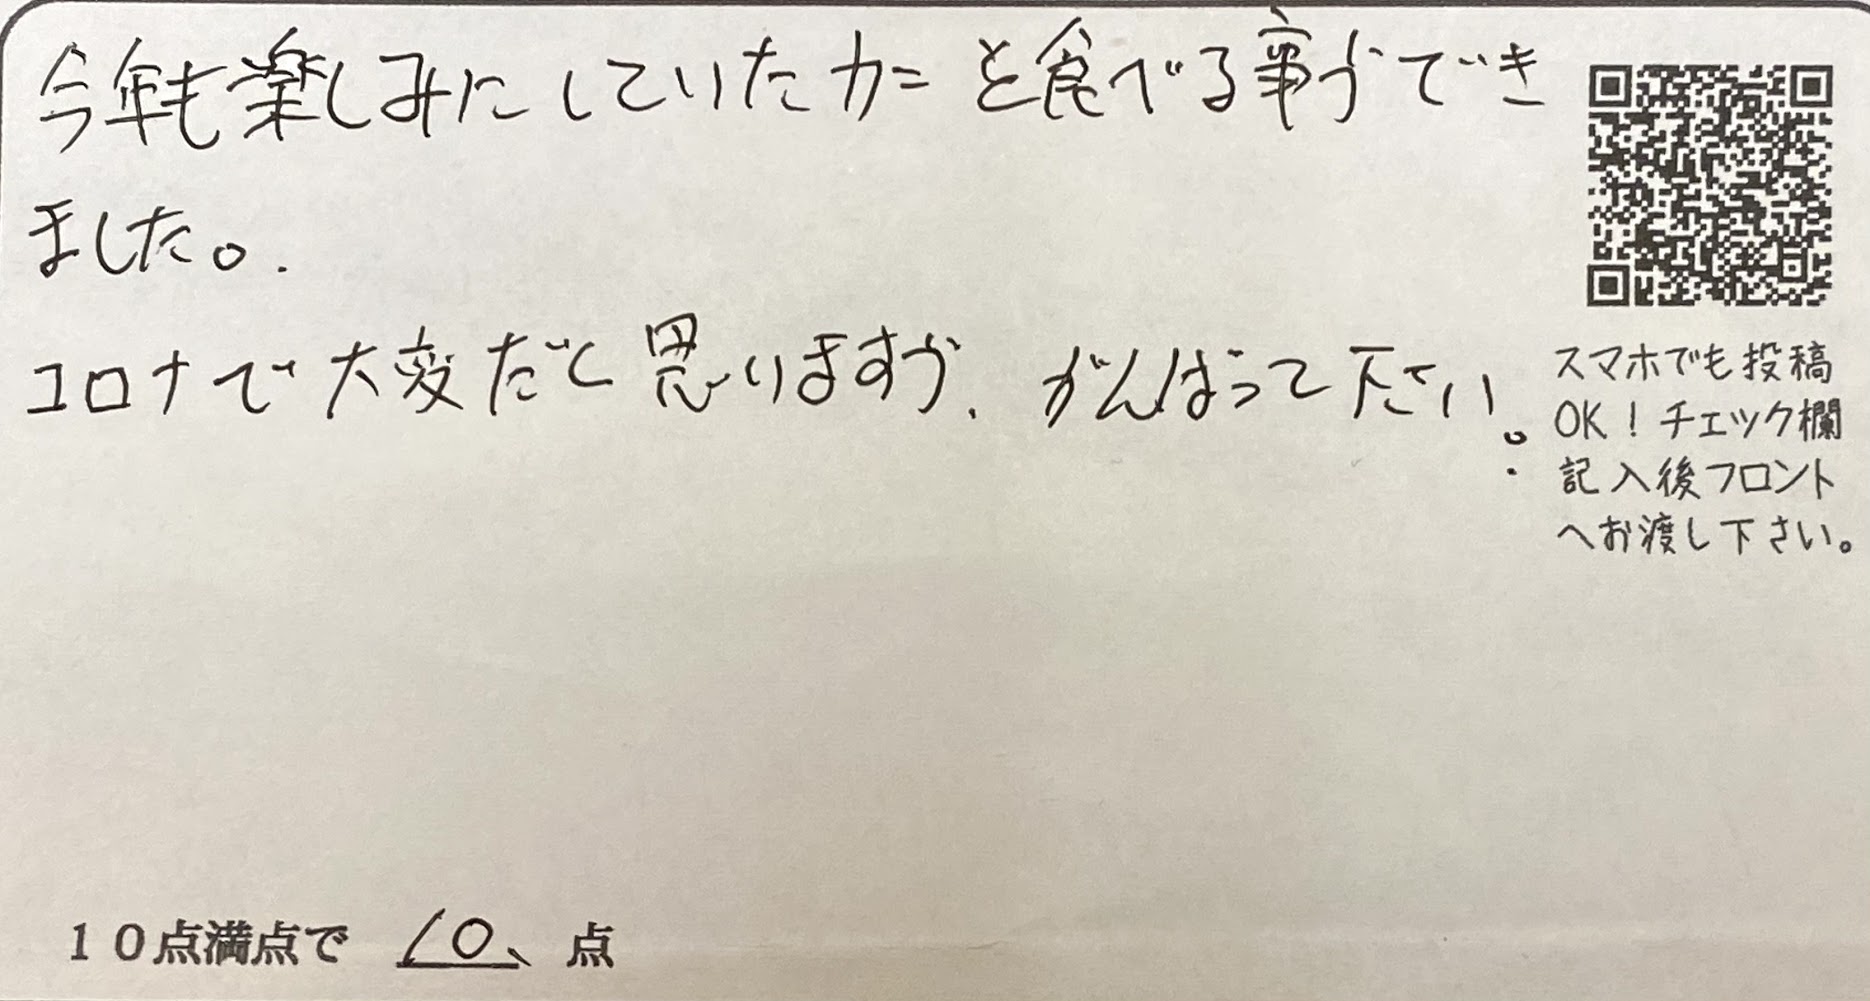 今年も楽しみにしていたカニを食べる事ができ
ました。
コロナで大変だと思いますが、がんばって下さい。
スマホでも投稿
OK！チェック欄
記入後フロント
へお渡し下さい。
１０点満点で 10 点